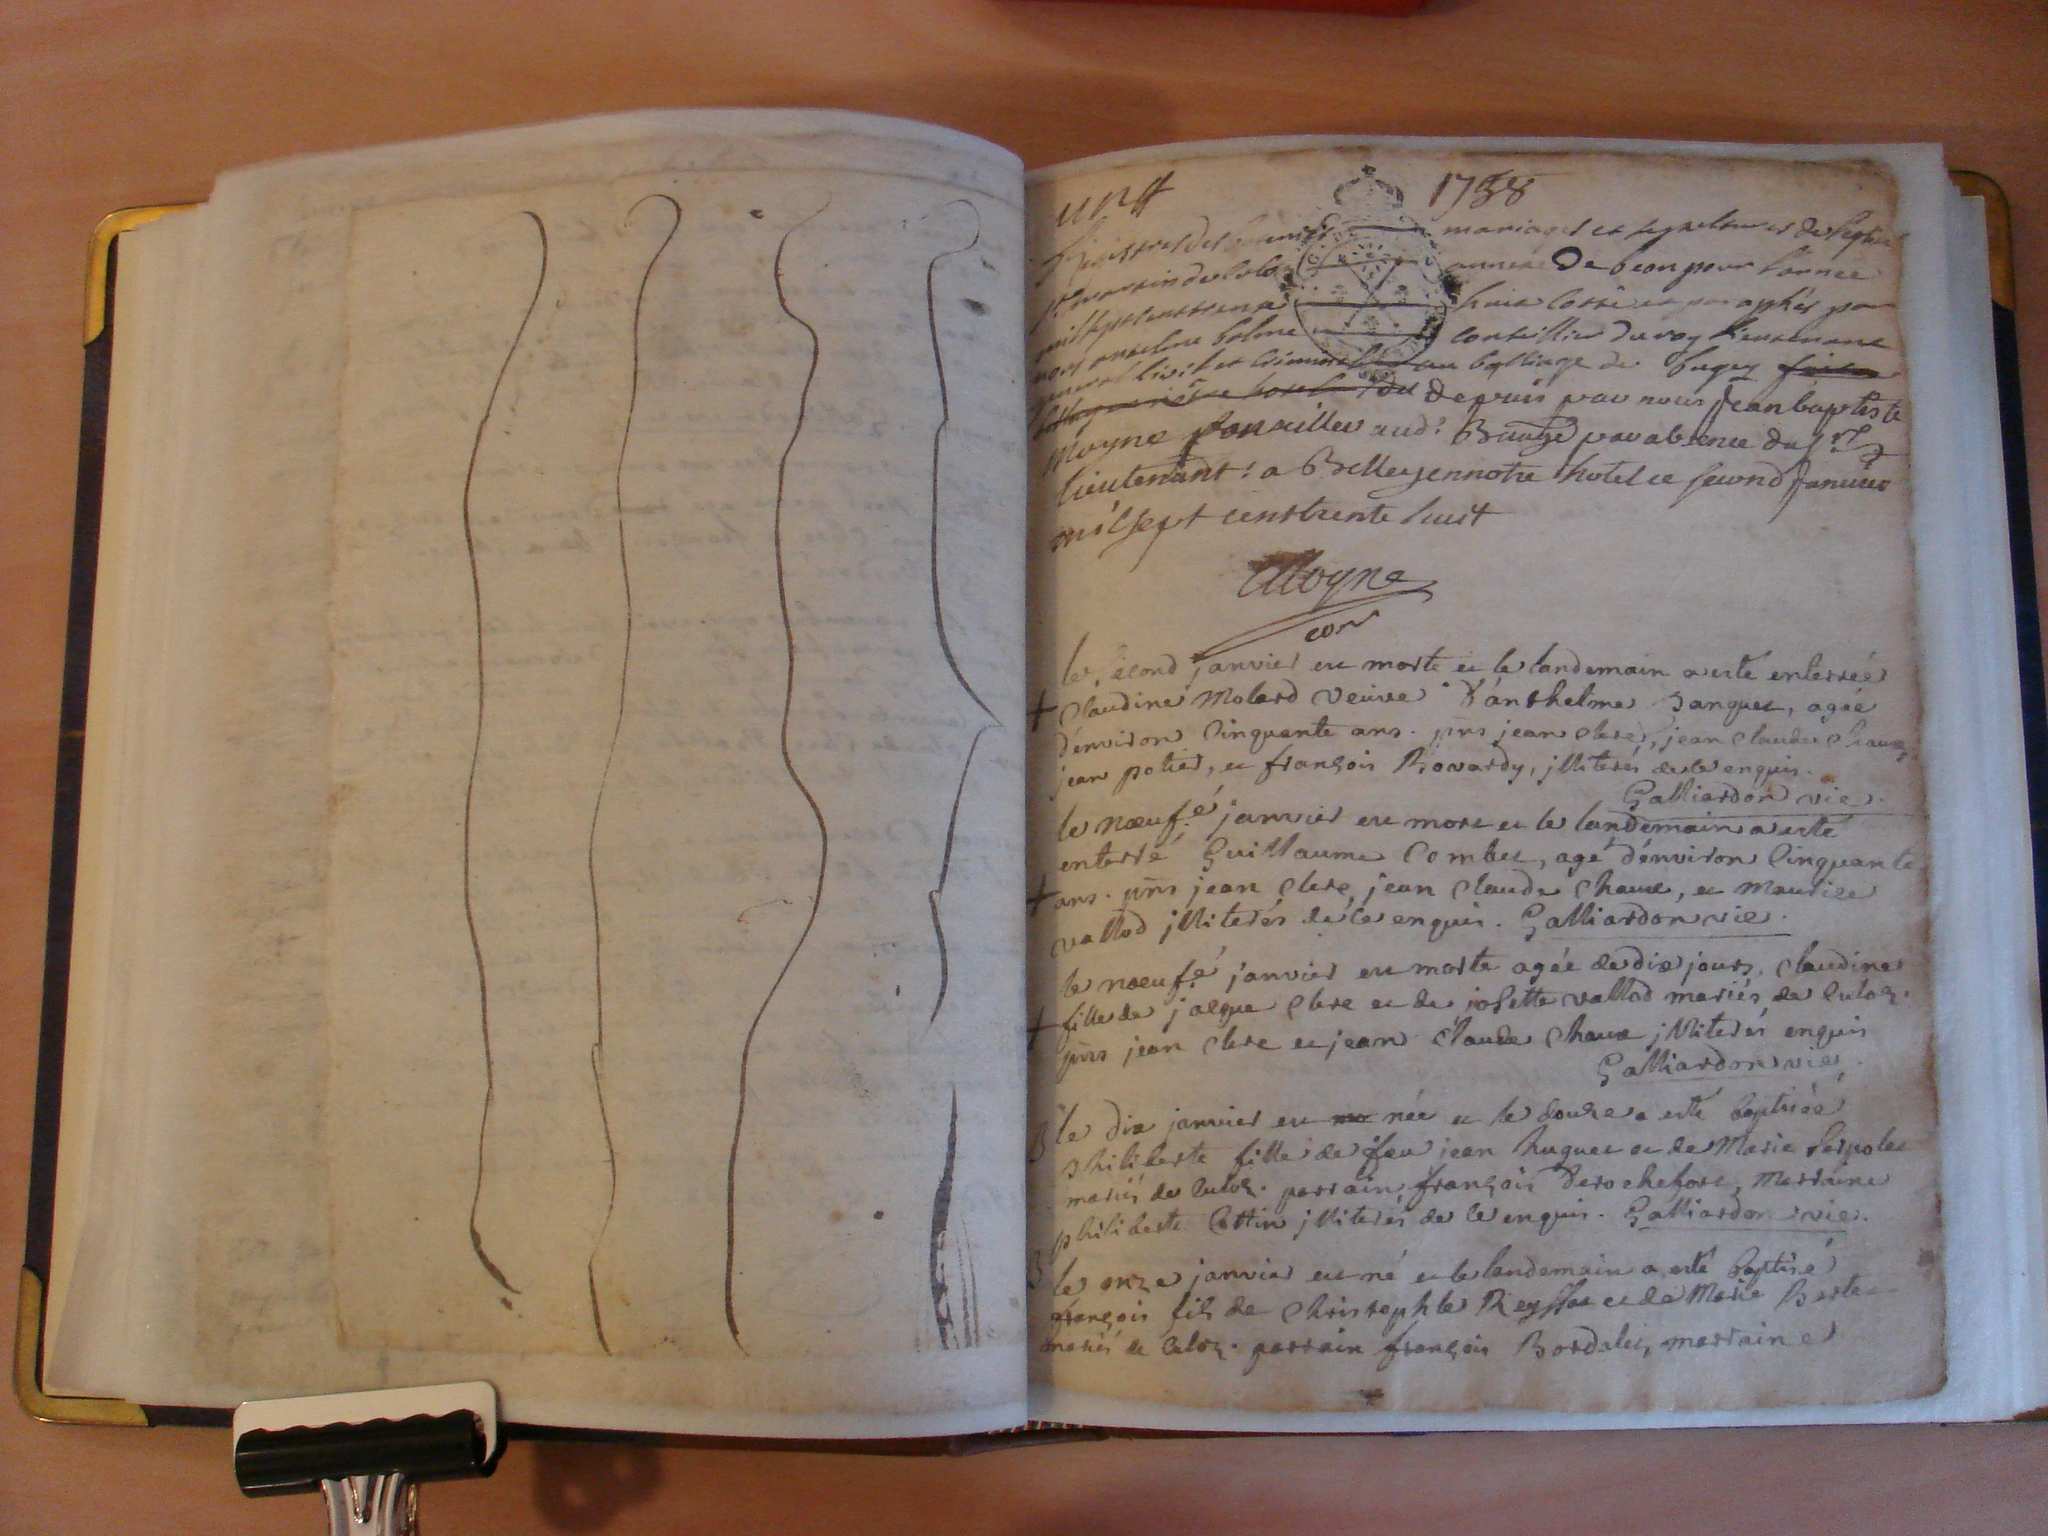 un ff 1738
Registres des mariages et sepultures de l'eglise
st martin de culoz annexe De beon pour l'année
mil sept cent trente huit cotté et paraphés par
nous anselme balme conseillier du roy lieutenant
general civil et criminel au balliage de bugey
Depuis par nous Jean baptiste
Moyne Conseiller aud: Bailge par absence du Sr
lieutenant: a Belley en notre hotel ce second Janvier
mil sept cent trente huit
Moyne
con
le second janvier est morte et le landemain a esté enterrée
+ Claudine Molard veuve d'anthelme Janguet, agée
d'environ Cinquante ans. pñs jean Clerc, jean claude Chaux,
jean potier, et françois Rovardy, jlliterés de ce enquis.
Galliardon vic.
le nœufé janvier est mort et le landemain a esté
enterré Guillaume Combet, agé d'environ Cinquante
+ ans. pñs jean Clerc, jean Claude Chaux, et Maurice
vallod jlliterés de ce enquis. Galliardon vic.
le nœufé janvier est morte agée de dix jours, claudine
+ fille de jacque Clerc et de josette vallod mariés de Culoz.
pñs jean Clerc et jean Claude Chaux jlliterés enquis
Galliardon vic.
B le dix janvier est née et le douze a esté baptisée
philiberte fille de feu jean huguet et de Marie
mariés de Culoz. parrain françois Derochefort, Marraine
philiberte Cottin jlliterés de ce enquis. Galliardon vic.
B le onze janvier est né et le landemain a esté baptisé
françois fils de Christophle Reyffat et de Marie
mariés de Culoz. parrain françois Bordalet, marraine